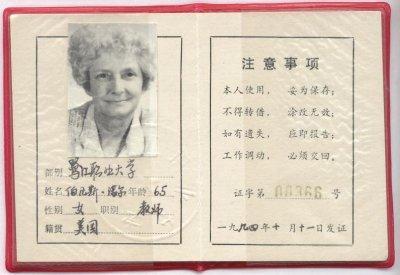 部别 职业大学
姓名 伯尼斯·瑞尔 年龄 65
性别 女 职别 教师
籍贯 美国
注意事项
本人使用, 妥为保存;
不得转借, 涂改无效;
如有遗失, 应即报告;
工作调动, 必须交回。
证字第 号
一九九四年十月十一日发证